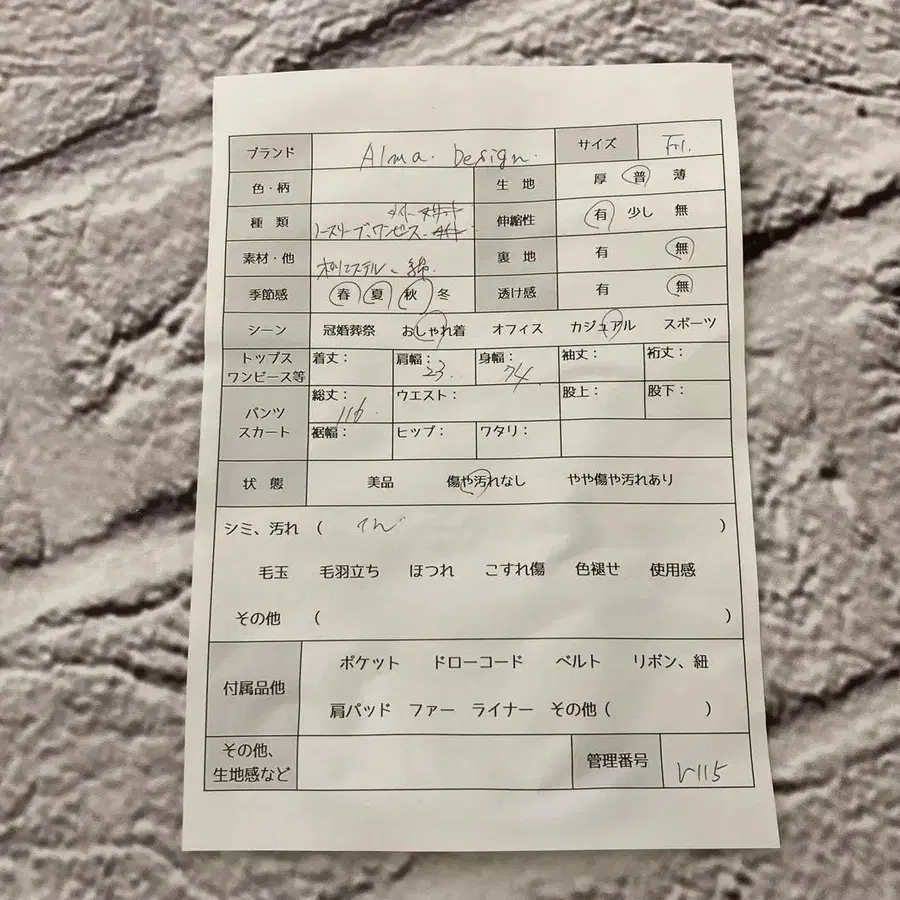 ブランド Alma. Design. サイズ Fri.
色・柄 生 地 厚 普 薄
種 類 ノースリーブ、ワンピース 伸縮性 有 少し 無
素材・他 ポリエステル、綿. 裏 地 有 無
季節感 春 夏 秋 冬 透け感 有 無
シーン 冠婚葬祭 おしゃれ着 オフィス カジュアル スポーツ
トップス ワンピース等 着丈： 肩幅： 23. 身幅： 74. 袖丈： 裄丈：
パンツ スカート 総丈： 116. ウエスト： 股上： 股下：
裾幅： ヒップ： ワタリ：
状 態 美品 傷や汚れなし やや傷や汚れあり
シミ、汚れ （ ）
毛玉 毛羽立ち ほつれ こすれ傷 色褪せ 使用感
その他 （ ）
付属品他 ポケット ドローコード ベルト リボン、紐
肩パッド ファー ライナー その他（ ）
その他、 生地感など 管理番号 V115